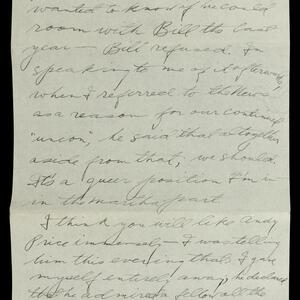 wanted to know if he could
room with Bill the last
year — Bill refused. In
speaking to me of it afterwards,
when I referred to the News
as a reason for our continued
"union", he said that altogether
aside from that, we should.
It's a queer position I'm in
in the part
I think you will like Andy
Price immensely — I was telling
him this evening that I gave
myself entirely away, he declared
that he admired a fellow all the